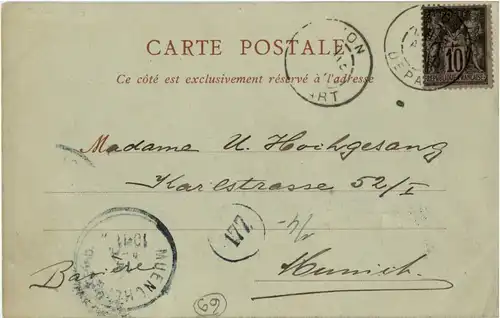 CARTE POSTALE
Ce côté est exclusivement réservé à l'adresse
10
Madame U. Hochgesang
Karlstrasse 52/I
177
MUENCHEN
Bavière
Munich.
69